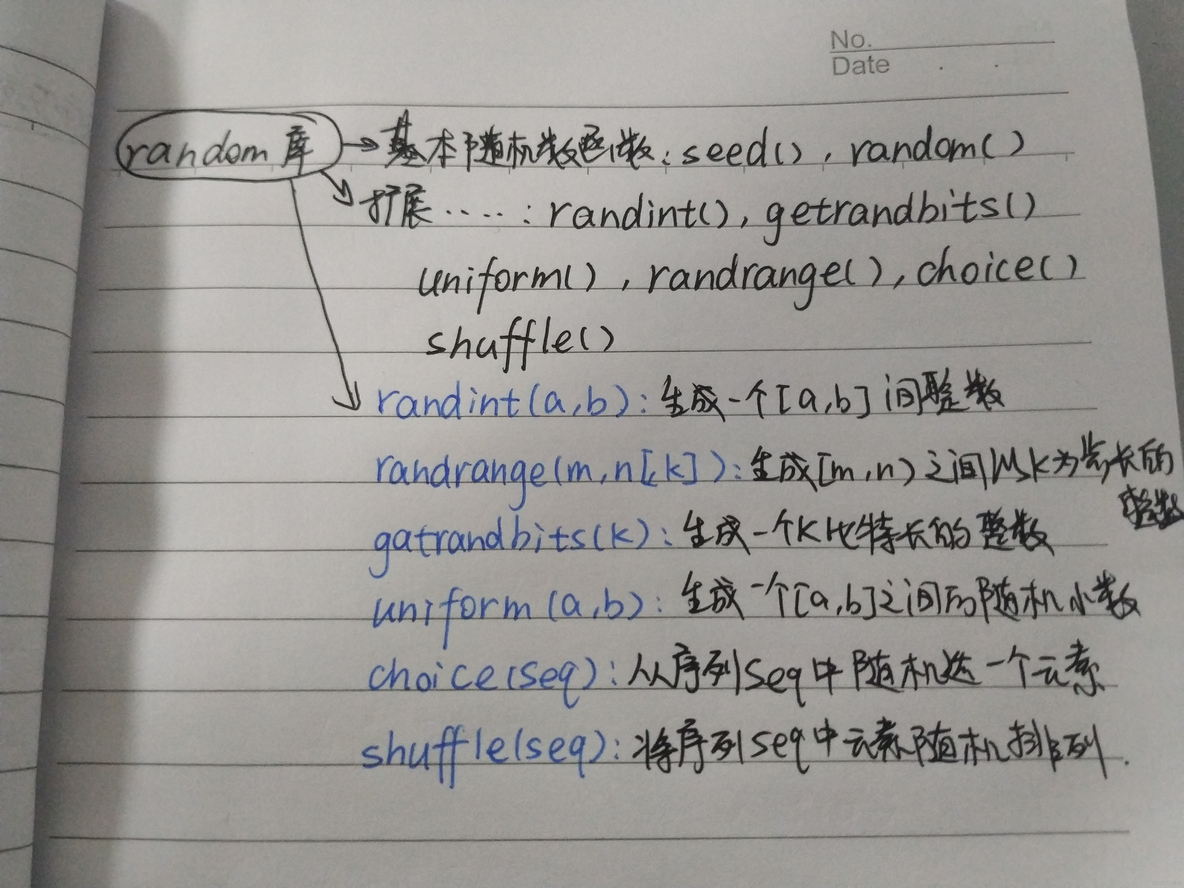 No.
Date
random库 → 基本随机数函数: seed(), random()
扩展·····: randint(), getrandbits()
uniform(), randrange(), choice()
shuffle()
randint(a,b): 生成一个[a,b]间整数
randrange(m,n[,k]): 生成[m,n)之间以k为步长的
整数
gatrandbits(k): 生成一个K比特长的整数
uniform(a,b): 生成一个[a,b]之间的随机小数
choice(seq): 从序列seq中随机选一个元素
shuffle(seq): 将序列seq中元素随机排列.